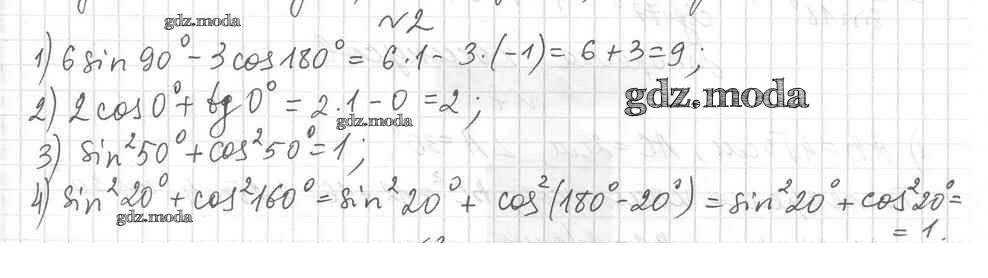 №2
gdz.moda
1) 6 sin 90° - 3 cos 180° = 6·1 - 3·(-1) = 6 + 3 = 9;
gdz.moda
2) 2 cos 0° + tg 0° = 2·1 - 0 = 2;
gdz.moda
3) sin²50° + cos²50° = 1;
4) sin²20° + cos²160° = sin²20° + cos²(180° - 20°) = sin²20° + cos²20° =
gdz.moda
= 1.